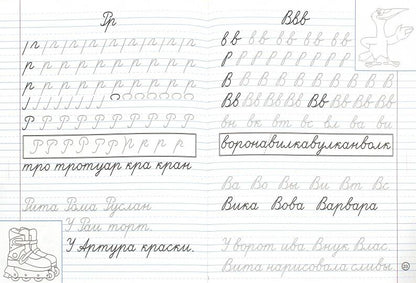 Рр
р р р р р р р р р р
р р р р р р р р р р
Р Р Р Р Р Р Р Р Р Р
тро тротуар кра кран
Рита Рома Руслан
У Раи торт.
У Артура краски.
Ввв
вв вв вв вв вв вв
В В В В В В В В
Вв Вв Вв Вв Вв Вв Вв
вн вк вт вс вл ва ви
воронавилкавулканволк
Ва Во Вы Ви Вт Вс
Вика Вова Варвара
У ворот ива. Внук Влас.
Вита нарисовала сливы.